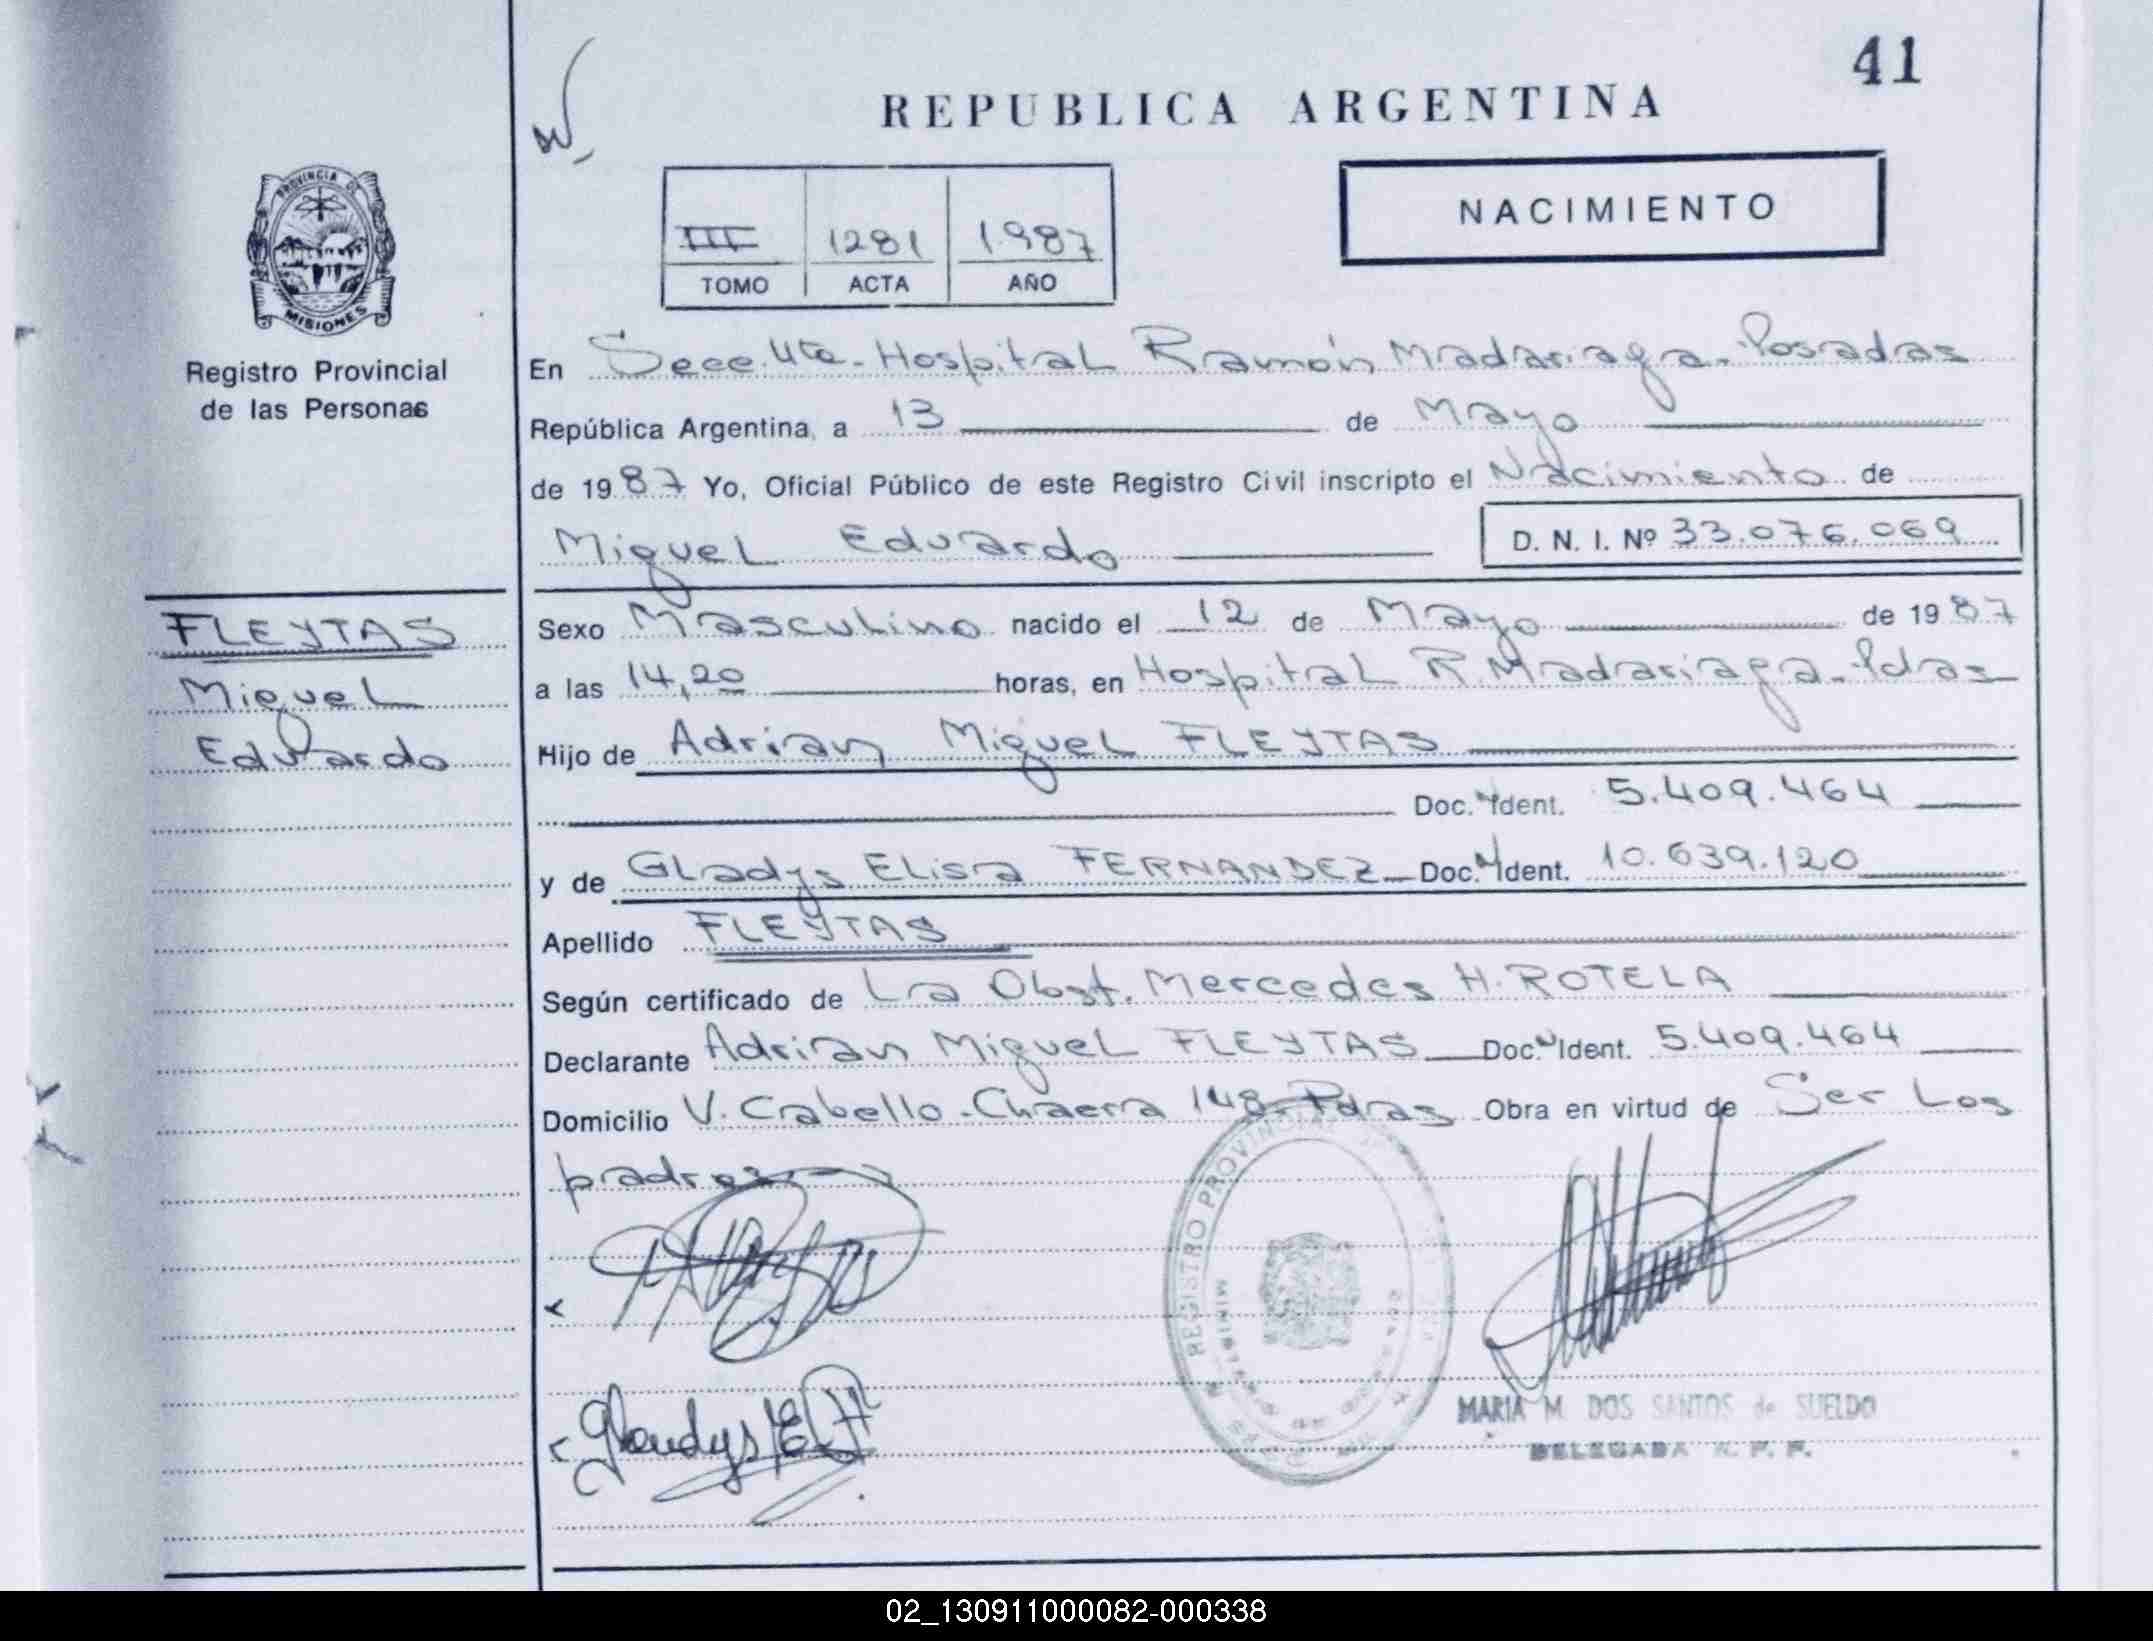 41
REPUBLICA ARGENTINA
NACIMIENTO
III 1281 1987
TOMO ACTA AÑO
PROVINCIA DE
MISIONES
Registro Provincial
de las Personas
En Secc. 4ta - Hospital Ramón Madariaga - Posadas
República Argentina, a 13 de Mayo
de 1987 Yo, Oficial Público de este Registro Civil inscripto el Nacimiento de
Miguel Eduardo D. N. I. Nº 33.076.069
FLEYTAS
Miguel
Eduardo
Sexo Masculino nacido el 12 de Mayo de 1987
a las 14,20 horas, en Hospital R. Madariaga - Pdas
Hijo de Adrian Miguel FLEYTAS
Doc. Ident. 5.409.464
y de Gladys Elisa FERNANDEZ Doc. Ident. 10.639.120
Apellido FLEYTAS
Según certificado de La Obst. Mercedes H. ROTELA
Declarante Adrian Miguel FLEYTAS Doc. Ident. 5.409.464
Domicilio V. Cabello - Chacra 148 - Pdas Obra en virtud de Ser Los
padres
REGISTRO PROVINCIAL
Gladys E
MARIA M. DOS SANTOS de SUELDO
DELEGADA R. P. P.
02_130911000082-000338